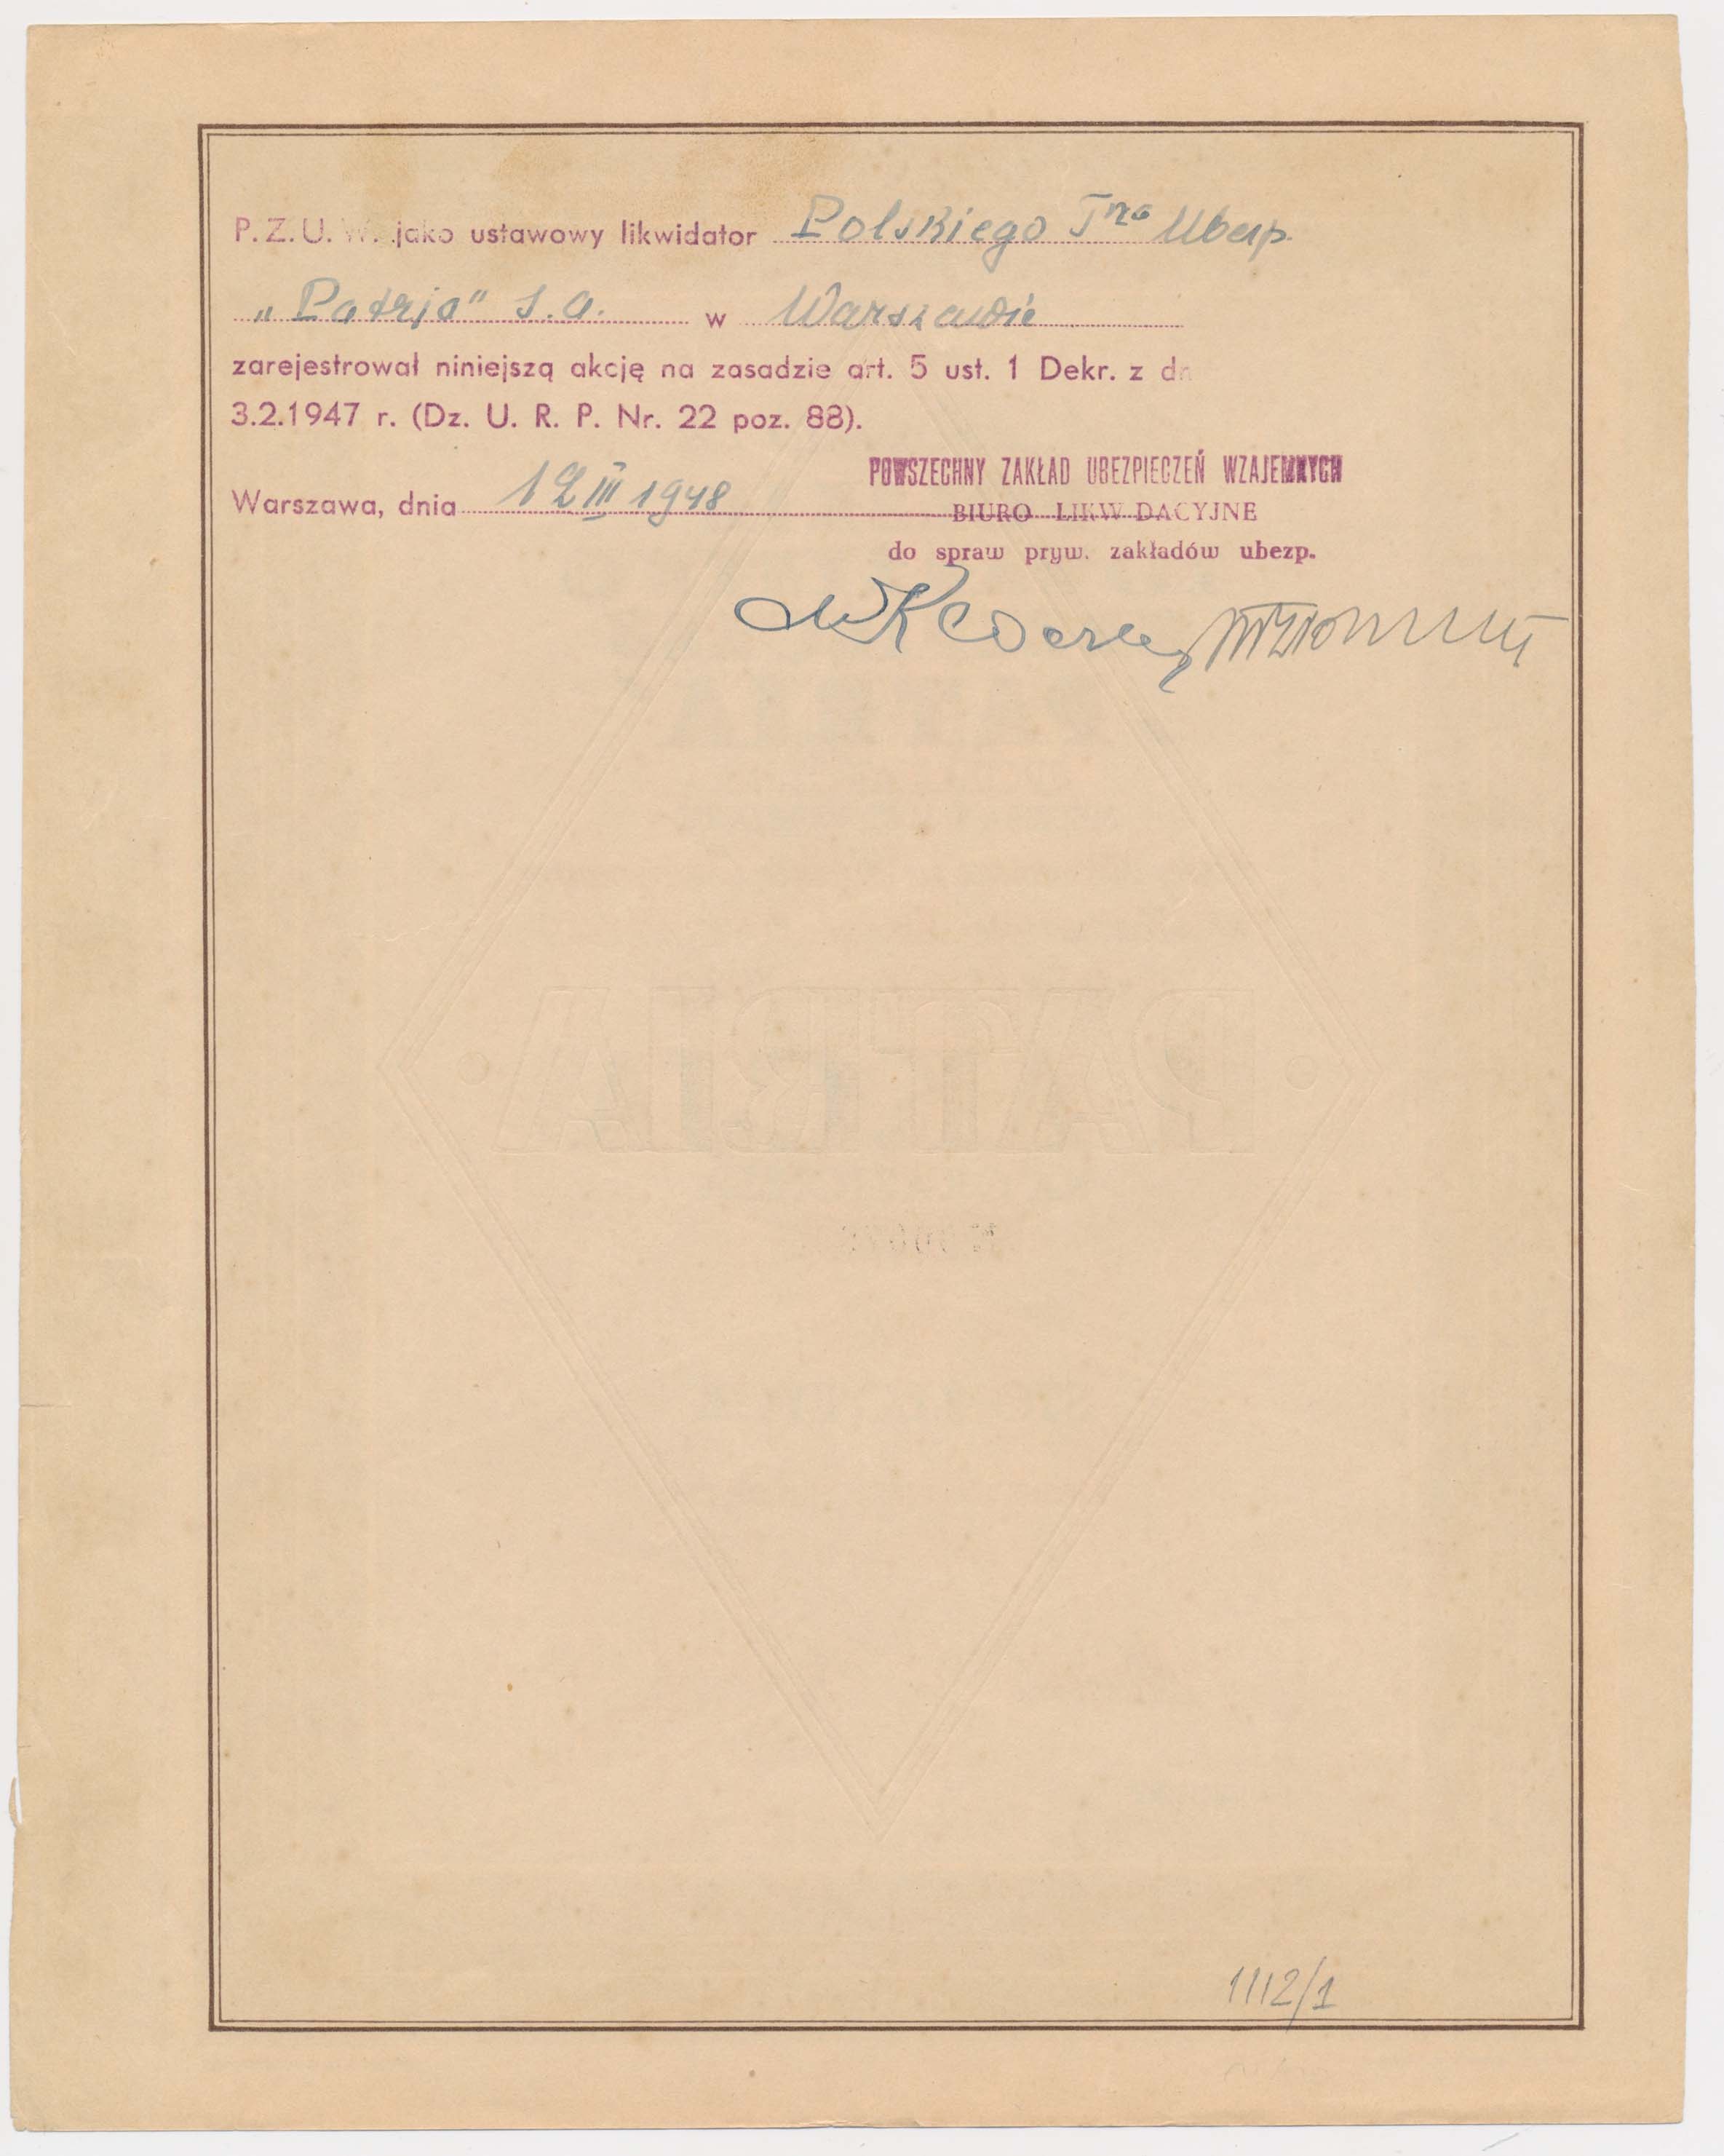 P. Z. U. W. jako ustawowy likwidator Polskiego Twa Ubezp.
„Patrja" S.A. w Warszawie
zarejestrował niniejszą akcję na zasadzie art. 5 ust. 1 Dekr. z dn
3.2.1947 r. (Dz. U. R. P. Nr. 22 poz. 88).
POWSZECHNY ZAKŁAD UBEZPIECZEŃ WZAJEMNYCH
Warszawa, dnia 12 III 1948
BIURO LIKW DACYJNE
do spraw pryw. zakładów ubezp.
PATRIA
1112/1